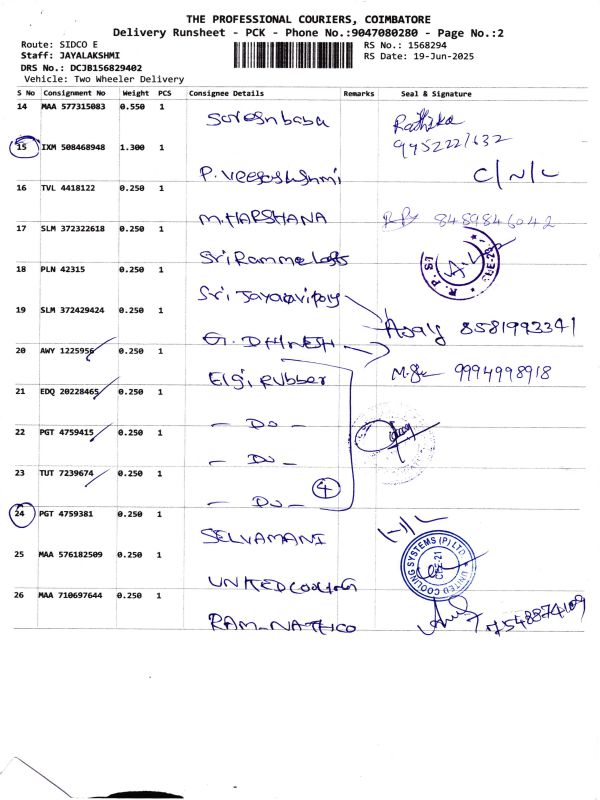 THE PROFESSIONAL COURIERS, COIMBATORE
Delivery Runsheet - PCK - Phone No.:9047080280 - Page No.:2
Route: SIDCO E
Staff: JAYALAKSHMI
DRS No.: DCJB156829402
Vehicle: Two Wheeler Delivery
RS No.: 1568294
RS Date: 19-Jun-2025
S No Consignment No Weight PCS Consignee Details Remarks Seal & Signature
14 MAA 577315083 0.550 1 Sureshbabu Radhika
9952221632
15 IXM 508468948 1.300 1 C/N/L
16 TVL 4418122 0.250 1 M.HARSHANA 8489846042
17 SLM 372322618 0.250 1 R.P.S
18 PLN 42315 0.250 1 Sri
19 SLM 372429424 0.250 1 G. DHINESH Ajay 8581993341
20 AWY 1225956 0.250 1 Elgi Rubber 9994998918
21 EDQ 20228465 0.250 1 - Do -
22 PGT 4759415 0.250 1 - Do -
23 TUT 7239674 0.250 1 - Do - 4
24 PGT 4759381 0.250 1 SELVAMANI
25 MAA 576182509 0.250 1 UNITED COOLING UNITED COOLING SYSTEMS (P) LTD CBE-21
26 MAA 710697644 0.250 1 RAM-NATH CO 7548874109